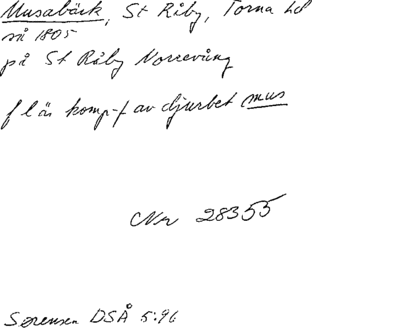 Musabäck, St Råby, Torna hd
så 1805
på St Råby Norrevång
f l är komp-f av djurbet mus
Nr 28355
Sørensen DSÅ 5:96